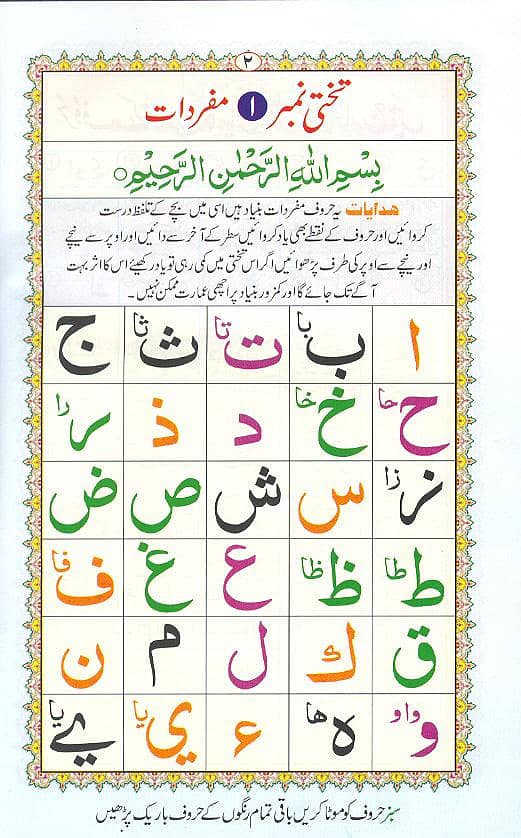 ۲
تختی نمبر ۱ مفردات
بِسْمِ اللّٰهِ الرَّحْمٰنِ الرَّحِيْمِ ○
ھدایات یہ حروف مفردات بنیاد ہیں اسی میں بچے کے تلفظ درست
کروائیں اور حروف کے نقطے بھی یاد کروائیں سطر کے آخر سے دائیں اور اوپر سے نیچے
اور نیچے سے اوپر کی طرف پڑھوائیں اگر اس تختی میں کمی رہی تو یاد رکھیئے اس کا اثر بہت
آگے تک جائے گا اور کمزور بنیاد پر اچھی عمارت ممکن نہیں۔
ا ب با ت تا ث ثا ج
ح حا خ خا د ذ ر را
ز زا س ش ص ض
ط طا ظ ظا ع غ ف فا
ق ك ل م ن
و واو ه ها ء ي يا ے يا
سبز حروف کو موٹا کریں باقی تمام رنگوں کے حروف باریک پڑھیں